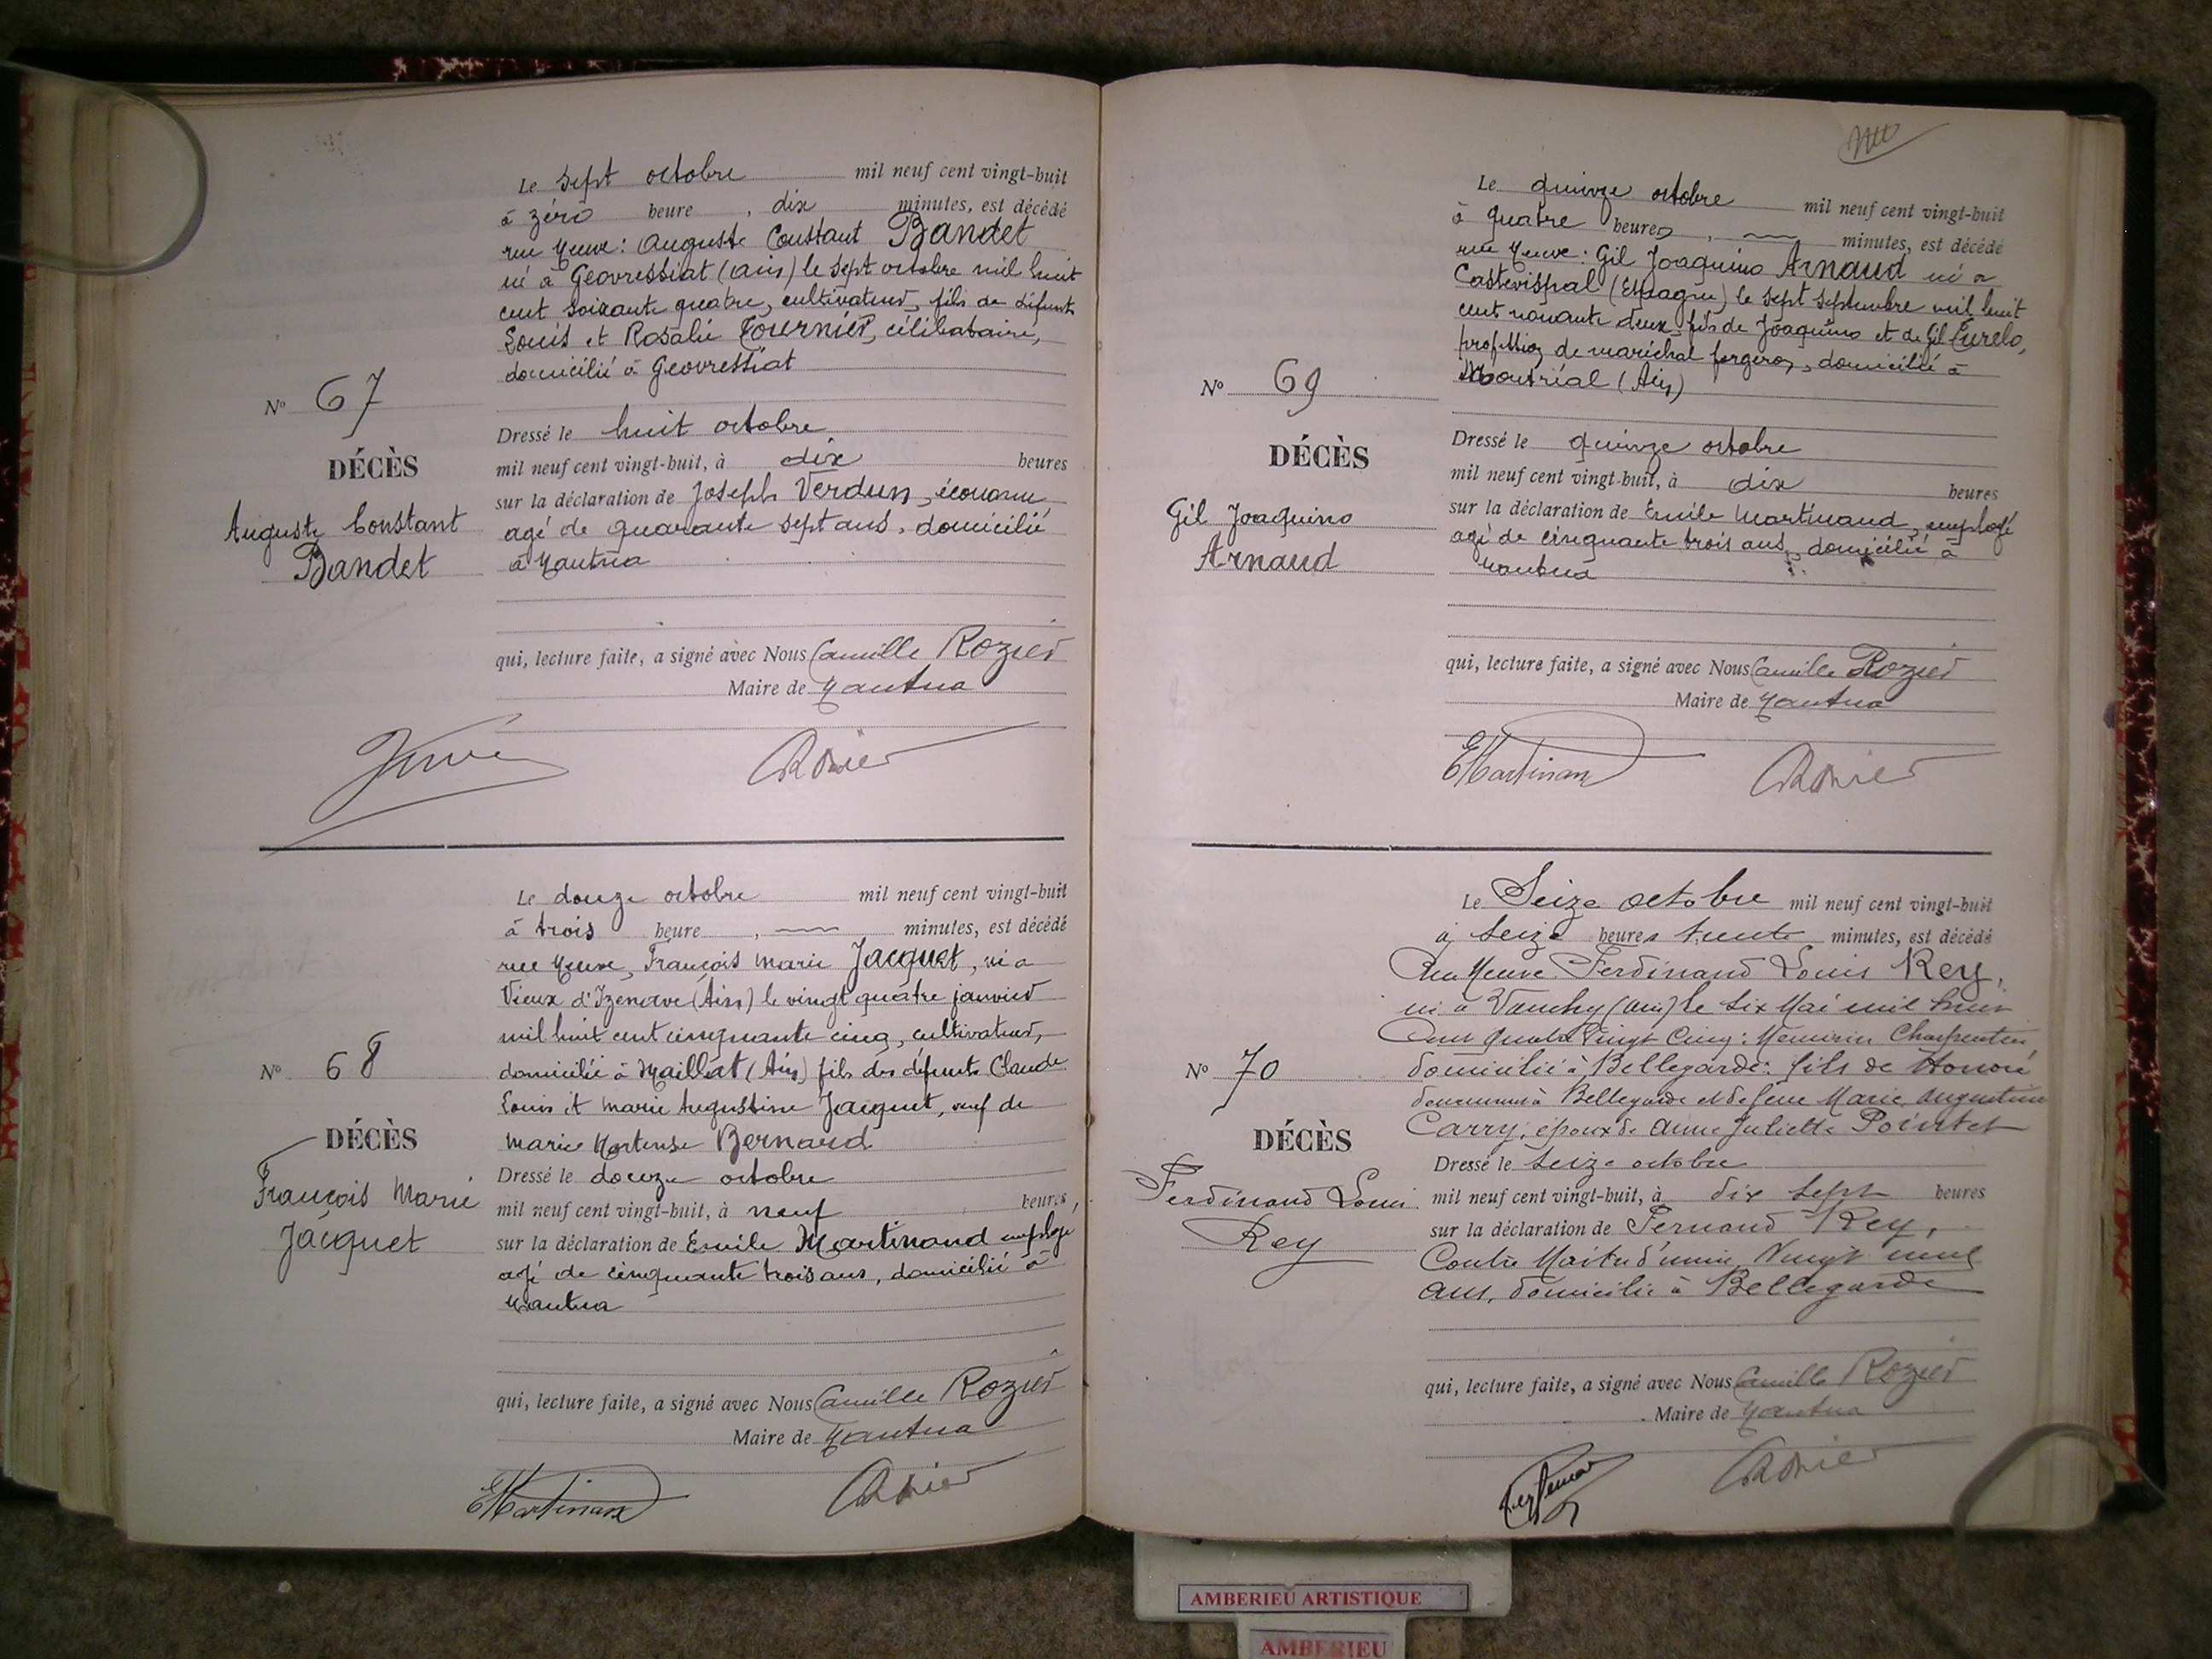 Le sept octobre mil neuf cent vingt-huit
à zéro heure, dix minutes, est décédé
rue Neuve: Auguste Constant Bandet
né à Géovressiat (Ain) le sept octobre mil huit
cent soixante quatre, cultivateur, fils de défunts
Louis et Rosalie Tournier, célibataire,
domicilié à Géovressiat
Nº 67
DÉCÈS
Auguste Constant
Bandet
Dressé le huit octobre
mil neuf cent vingt-huit, à dix heures
sur la déclaration de Joseph Verdun, économe
agé de quarante sept ans, domicilié
à Nantua
qui, lecture faite, a signé avec Nous Camille Rozier
Maire de Nantua
CRozier
Le douze octobre mil neuf cent vingt-huit
à trois heure, minutes, est décédé
rue Neuve, François Marie Jacquet, né a
Vieux d'Izenave (Ain) le vingt quatre janvier
mil huit cent cinquante cinq, cultivateur,
domicilié à Maillat (Ain) fils des défunts Claude
Louis et Marie Augustine Jacquet, veuf de
Marie Hortense Bernaud
Nº 68
DÉCÈS
François Marie
Jacquet
Dressé le douze octobre
mil neuf cent vingt-huit, à neuf heures,
sur la déclaration de Emile Martinand employé
agé de cinquante trois ans, domicilié à
Nantua
qui, lecture faite, a signé avec Nous Camille Rozier
Maire de Nantua
EMartinand CRozier
Le quinze octobre mil neuf cent vingt-huit
à quatre heures, minutes, est décédé
rue Neuve: Gil Joaquino Arnaud né a
Castevispal (Espagne) le sept septembre mil huit
cent nonante deux, fils de Joaquino et de Gil Curelo,
profession de maréchal forgeron, domicilié à
Montréal (Ain)
Nº 69
DÉCÈS
Gil Joaquino
Arnaud
Dressé le quinze octobre
mil neuf cent vingt-huit, à dix heures
sur la déclaration de Emile Martinand, employé
agé de cinquante trois ans, domicilié à
Nantua
qui, lecture faite, a signé avec Nous Camille Rozier
Maire de Nantua
EMartinand CRozier
Le Seize octobre mil neuf cent vingt-huit
à seize heures trente minutes, est décédé
Rue Neuve Ferdinand Louis Rey,
né à Vanchy (Ain) le six Mai mil huit
Cent quatre Vingt Cinq: Menuisier Charpentier
domicilié à Bellegarde: fils de Honoré
demeurant à Bellegarde et de feue Marie Augustine
Carry, époux de Anne Juliette Pointet
Nº 70
DÉCÈS
Ferdinand Louis
Rey
Dressé le seize octobre
mil neuf cent vingt-huit, à dix sept heures
sur la déclaration de Fernand Rey,
Contre Maitre d'usine Vingt neuf
ans, domicilié à Bellegarde
qui, lecture faite, a signé avec Nous Camille Rozier
Maire de Nantua
Rey Fernand CRozier
AMBERIEU ARTISTIQUE
AMBERIEU